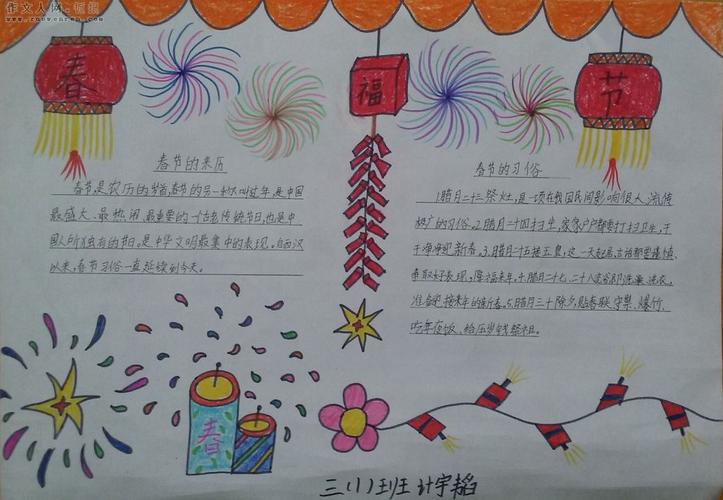 作文人网·板报
www.zuowenren.com
春
福
节
春节的来历
春节,是农历的岁首,春节的另一种叫过年,是中国
最盛大、最热闹、最重要的一个古老传统节日,也是中
国人所独有的节日,是中华文明最集中的表现。自西汉
以来,春节习俗一直延续到今天。
春节的习俗
1.腊月二十三祭灶,是一项在我国民间影响很大、流传
极广的习俗。2.腊月二十四扫尘,家家户户都要打扫卫生,干
干净净迎新春。3.腊月二十五接玉皇,这一天起居、言语都要谨慎,
争取好表现,降福来年。4.腊月二十七、二十八洗浴洗衣,
准备迎接来年的新春。5.腊月三十除夕,贴春联、守祭、爆竹、
吃年夜饭、给压岁钱祭祖。
春
三(1)班 计宇韬